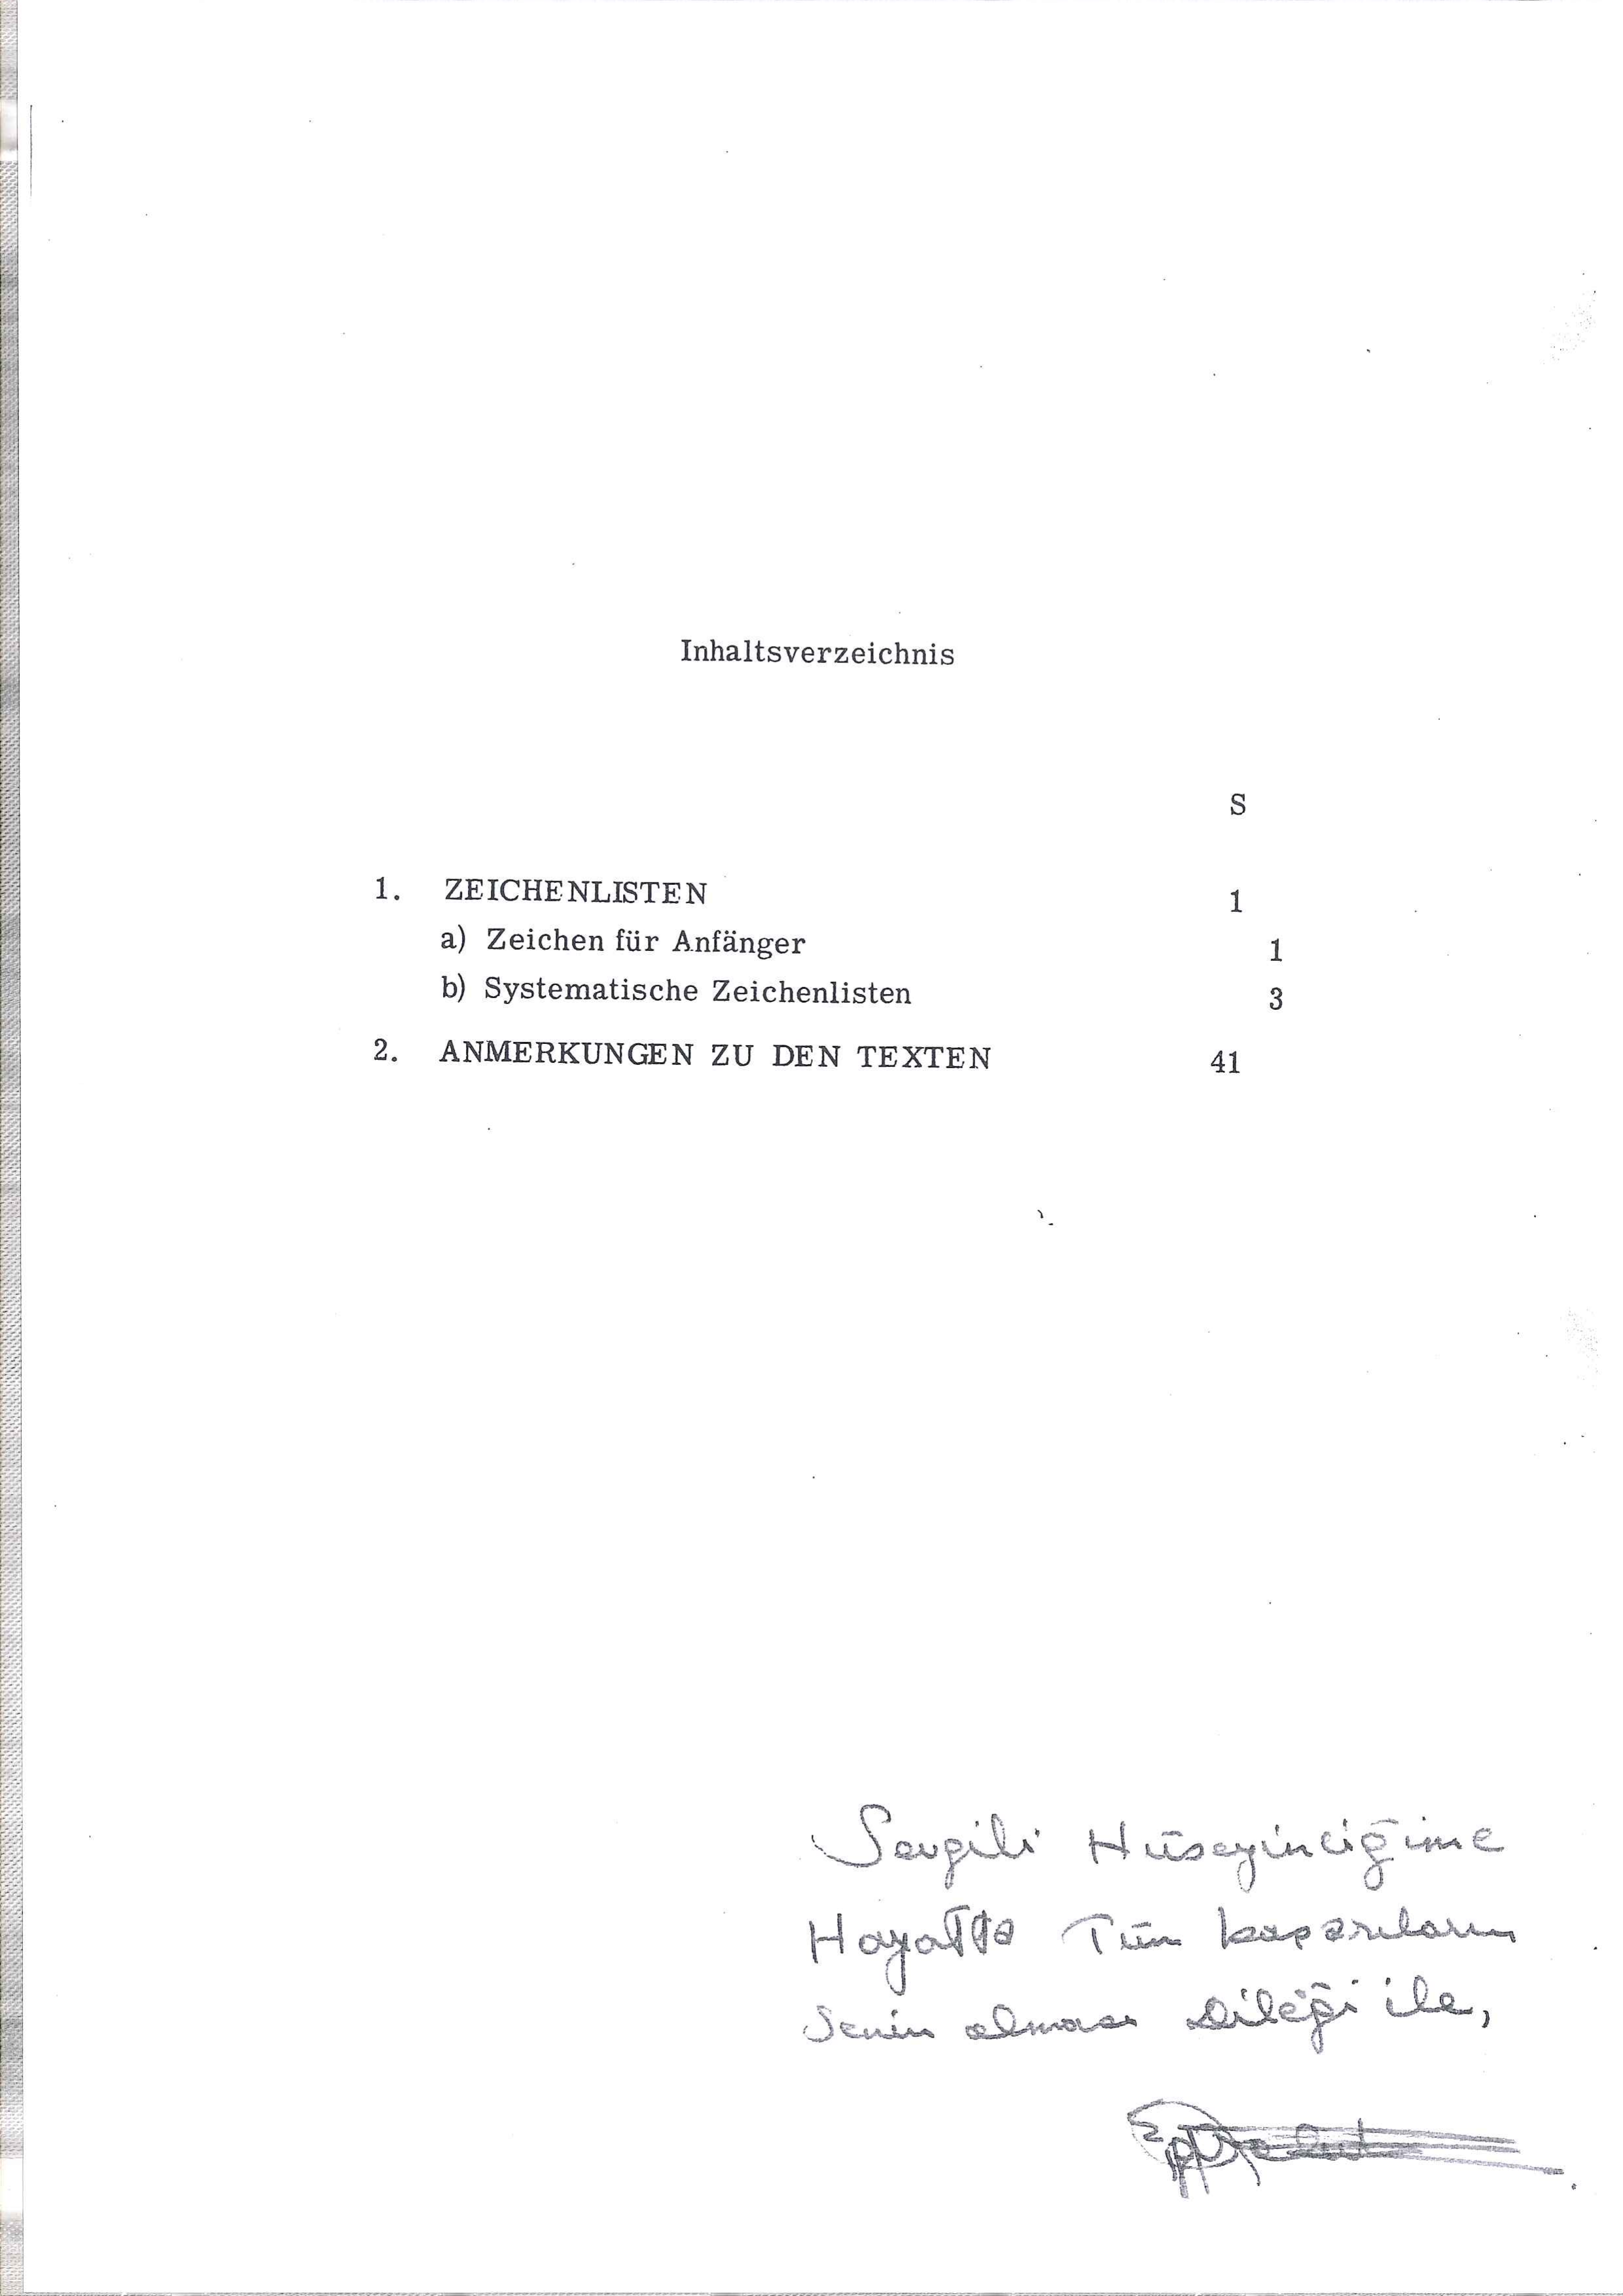 Inhaltsverzeichnis
S
1. ZEICHENLISTEN 1
a) Zeichen für Anfänger 1
b) Systematische Zeichenlisten 3
2. ANMERKUNGEN ZU DEN TEXTEN 41
Sevgili Hüseyinciğime
Hayatta Tüm başarıların
Senin olması Dileği ile,